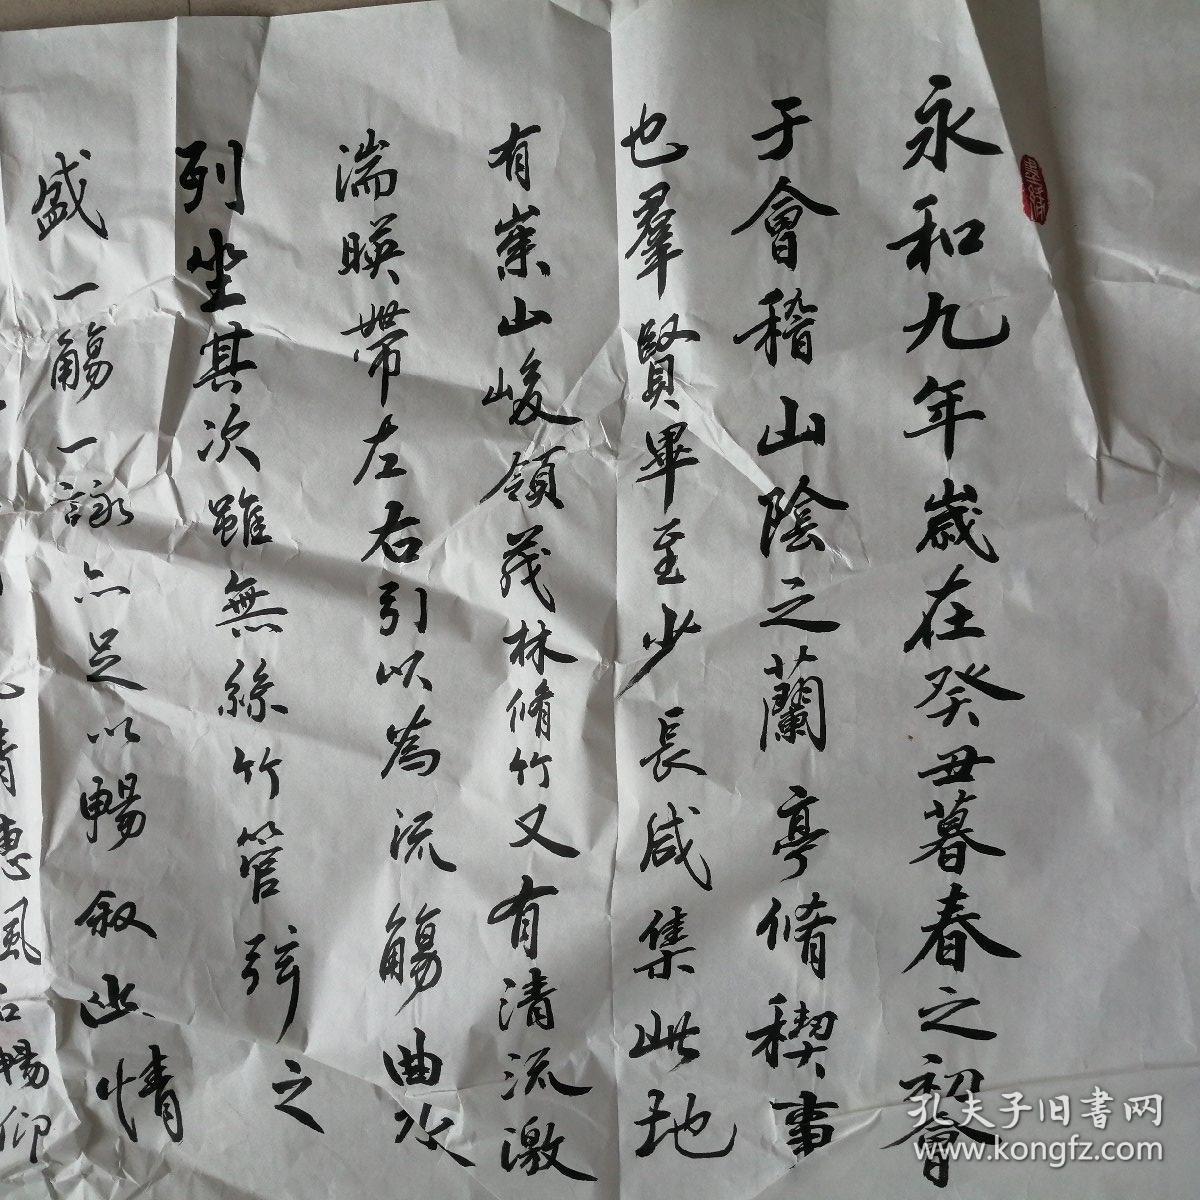 永和九年歲在癸丑暮春之初會
于會稽山陰之蘭亭脩稧事
也羣賢畢至少長咸集此地
有崇山峻領茂林脩竹又有清流激
湍暎帶左右引以為流觴曲水
列坐其次雖無絲竹管弦之
盛一觴一詠亦足以暢叙幽情
清惠風和暢仰
孔夫子旧書网
www.kongfz.com